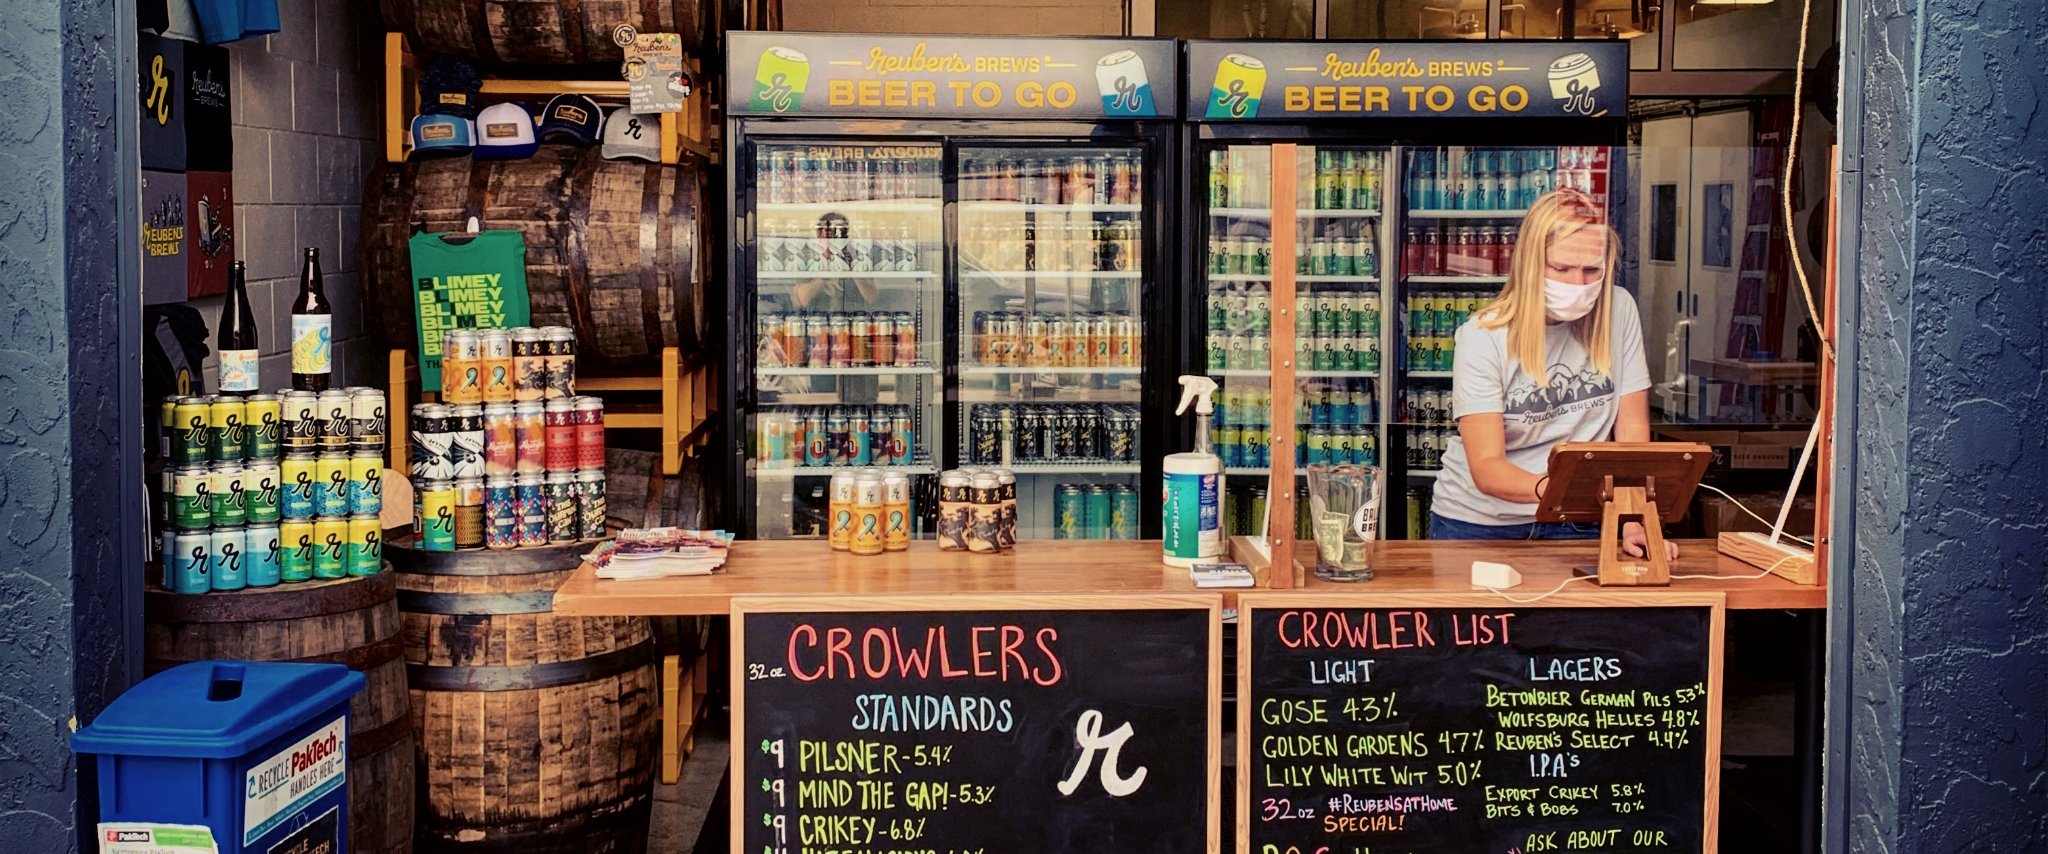 Reuben's BREWS
BEER TO GO
Reuben's BREWS
BEER TO GO
REUBENS
BREWS
BLIMEY
BLIMEY
BLIMEY
Reuben's BREWS
CROWLERS
32 oz
STANDARDS
$9 PILSNER - 5.4%
$9 MIND THE GAP! - 5.3%
$9 CRIKEY - 6.8%
CROWLER LIST
LIGHT
GOSE 4.3%
GOLDEN GARDENS 4.7%
LILY WHITE WIT 5.0%
32 oz #REUBENSATHOME
SPECIAL!
LAGERS
BETONBIER GERMAN PILS 5.3%
WOLFSBURG HELLES 4.8%
REUBEN'S SELECT 4.4%
I.P.A's
EXPORT CRIKEY 5.8%
BITS & BOBS 7.0%
ASK ABOUT OUR
RECYCLE PakTech
HANDLES HERE
PakTech